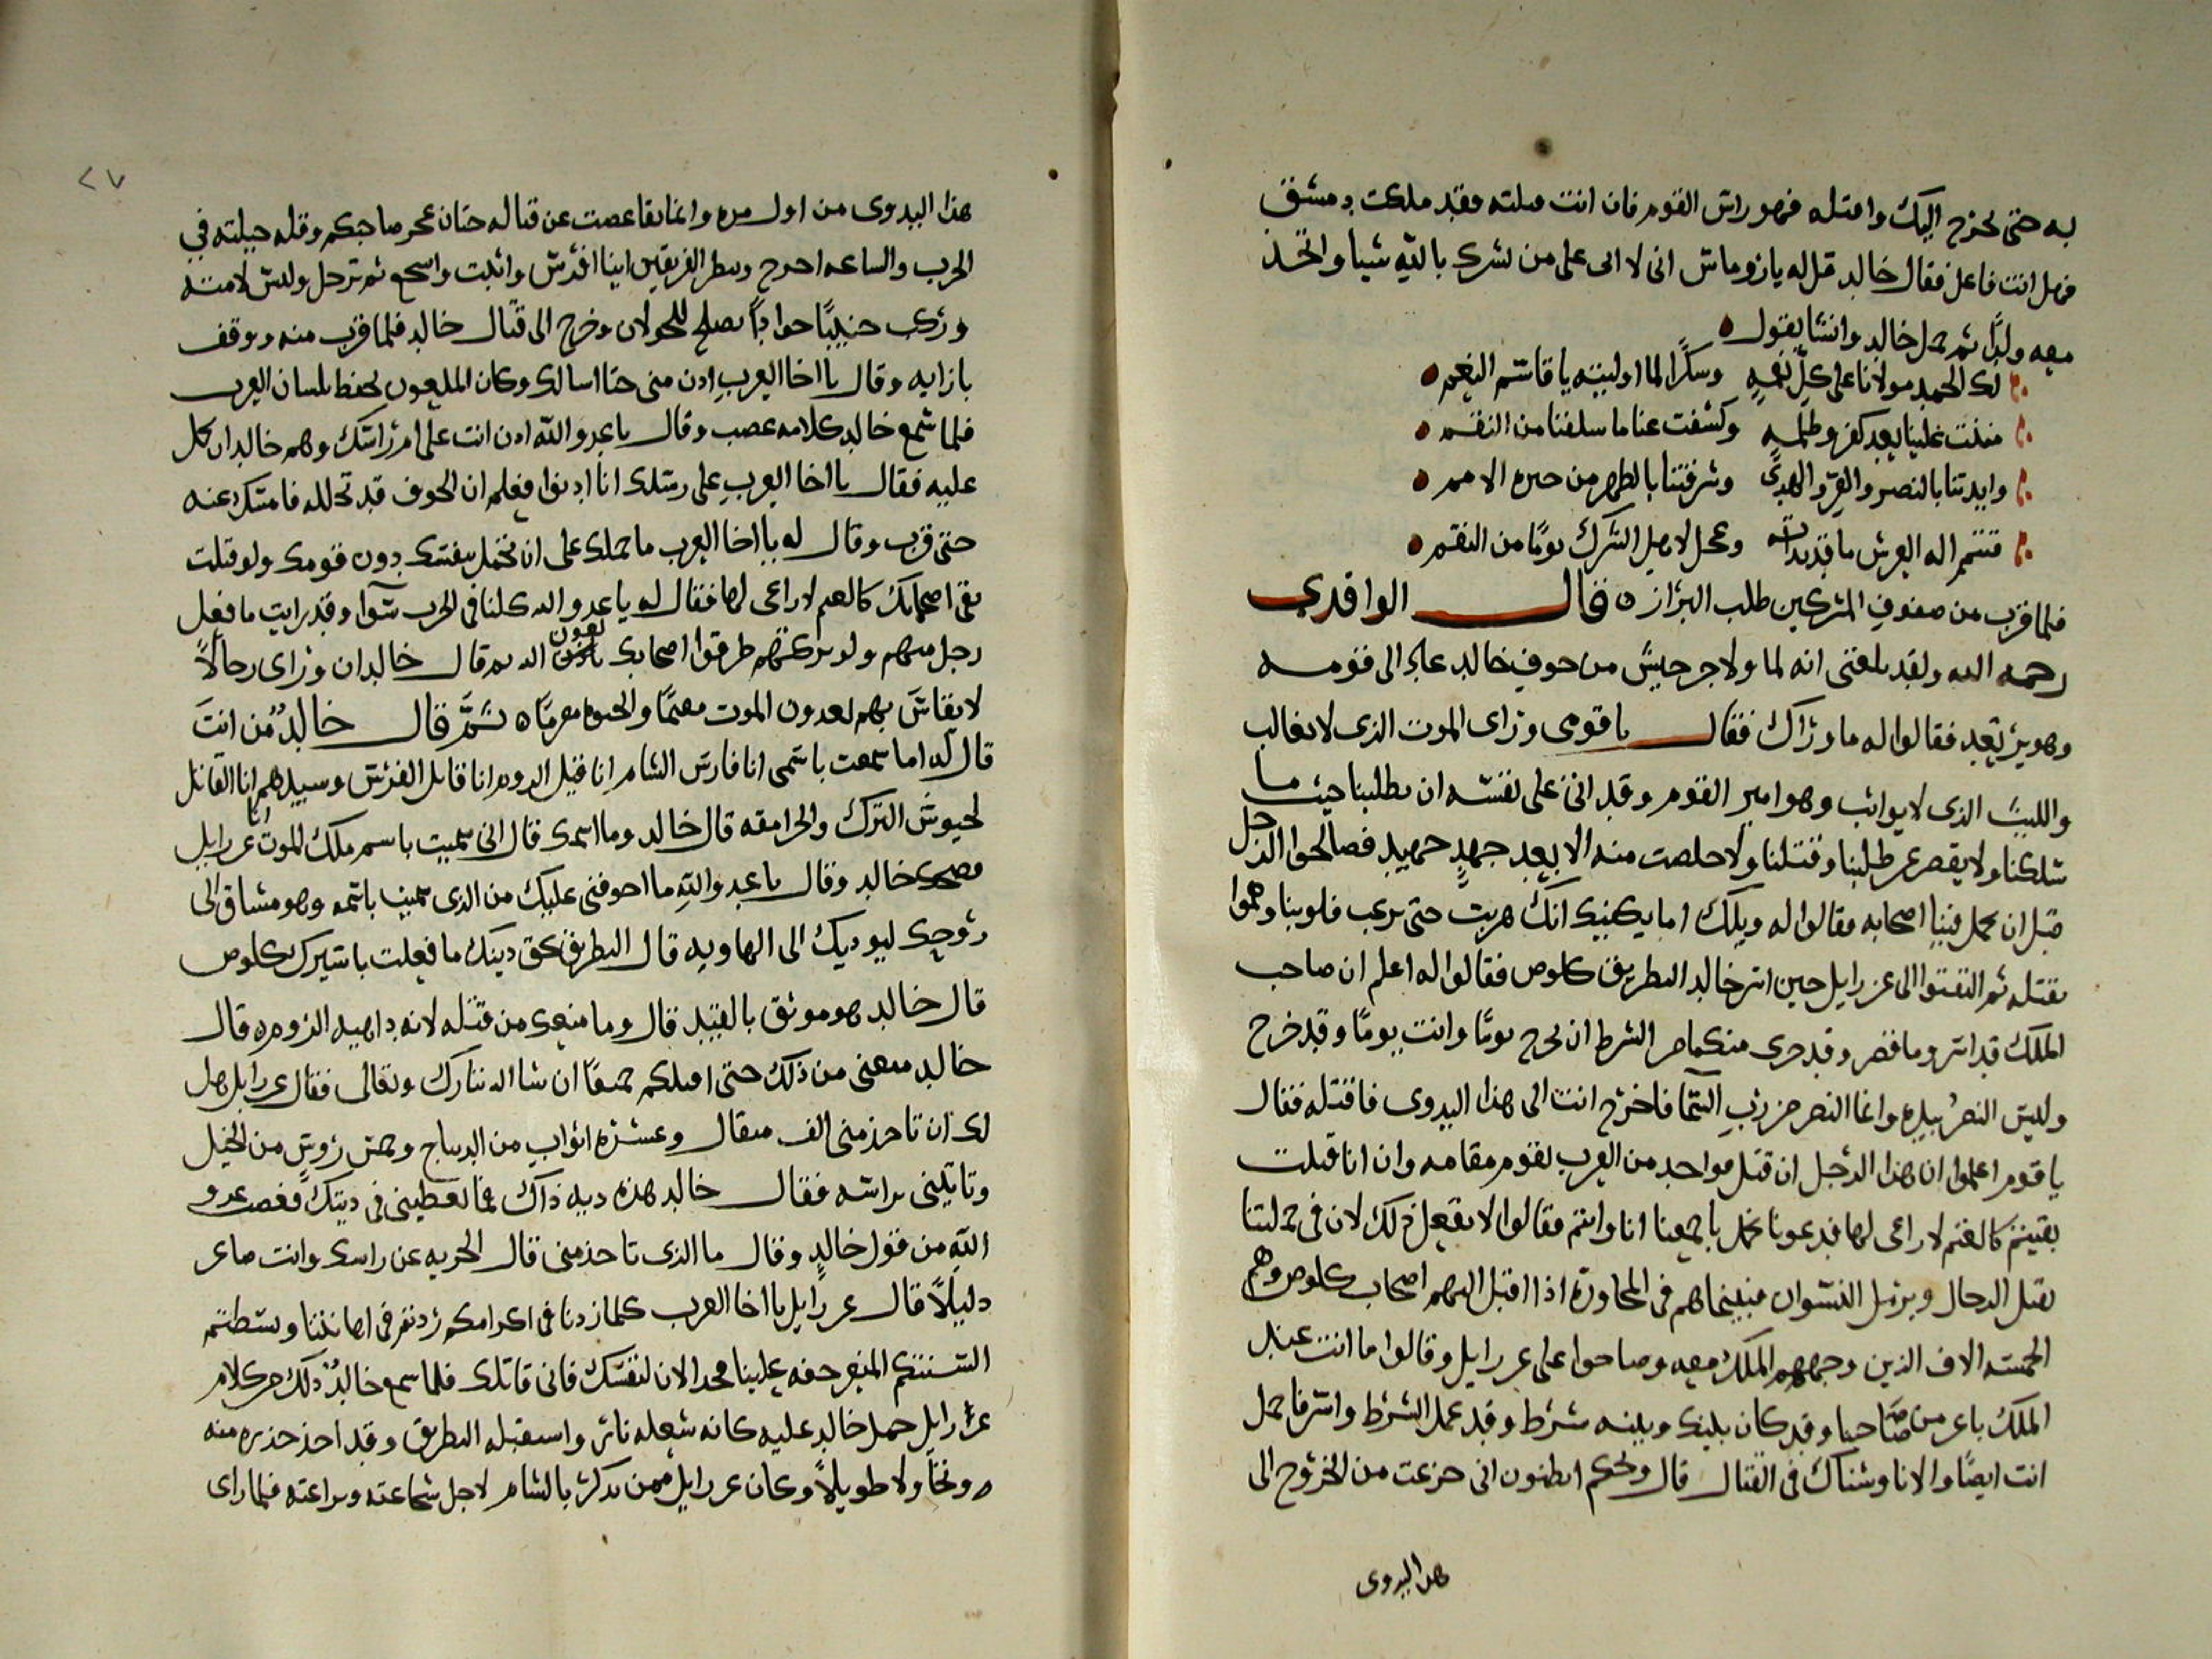 به حتى يخرج اليك واقتله فهو راس القوم فان انت قتلته فقد ملكت دمشق
فهل انت فاعل فقال خالد قل له يا روماس انى لا ابقى على من يشرك بالله شيا واتخذ
معه ولدًا ثم حمل خالد وانشا يقول
لك الحمد مولانا على كل نعمةٍ وشكرًا لما اوليته يا قاسم النعم
مننت علينا بعد كفر وظلمةٍ وكشفت عنا ما سلفنا من النقم
وايدتنا بالنصر والعز والهدى وشرفتنا بالطهر من خيره الامم
فتمم اله العرش ما قد بداته وعجل لاهل الشرك يومًا من النقم
فلما قرب من صفوف المشركين طلب البراز قال الواقدي
رحمه الله ولقد بلغنى انه لما ولا جرجيس من خوف خالد عاد الى قومه
وهو يرتعد فقالوا له ما وراك فقال يا قومى وراى الموت الذى لا يغالب
والليث الذى لا يواثب وهو امير القوم وقد الى على نفسه ان يطلبنا حيث ما
سلكنا ولا يقصر عن طلبنا وقتلنا ولا خلصت منه الا بعد جهدٍ جهيد فصالحوا الرجل
قبل ان يحمل فينا اصحابه فقالوا له ويلك اما يكفيك انك هربت حتى ترعب قلوبنا وهموا
بقتله ثم التفتوا الى عزرايل حين اسر خالد البطريق كلوص فقالوا له اعلم ان صاحب
الملك قد اسر وما قصر وقد جرى منكما من الشرط ان يخرج يومًا وانت يومًا وقد خرج
وليس النصر بيده وانما النصر من رب السما فاخرج انت الى هذا البدوى فاقتله فقال
يا قوم اعلموا ان هذا الرجل ان قتل فواحد من العرب يقوم مقامه وان انا قتلت
بقيتم كالغنم لا راعى لها فدعونا نحمل باجمعنا انا وانتم فقالوا لا نفعل ذلك لان فى حملتنا
يقتل الرجال ويرمل النسوان فبينما هم فى المحاورة اذا اقبل اليهم اصحاب كلوص وهم
الخمسه الاف الذين وجههم الملك معه وصاحوا على عزرايل وقالوا ما انت عند
الملك باعز من صاحبنا وقد كان بينك وبينه شرط وقد عمل الشرط واسر فاحمل
انت ايضًا والا ناوشناك فى القتال قال ويحكم اتظنون انى جزعت من الخروج الى
هذا البدوى
٢٧
هذا البدوى من اول مره وانما تقاعصت عن قتاله حتى ان عجز صاحبكم وقله حيلته في
الحرب والساعه اخرج وينظر الفريقين اينا افرس واثبت واشجع ثم ترجل ولبس لامته
وركب جنيبًا جوادًا يصلح للجولان وخرج الى قتال خالد فلما قرب منه ووقف
بازايه وقال يا اخا العرب ادن منى حتا اسالك وكان الملعون يحفظ بلسان العرب
فلما سمع خالد كلامه غضب وقال يا عدو الله ادن انت على ام راسك وهم خالد ان يحمل
عليه فقال يا اخا العرب على رسلك انا ادنوا فعلم ان الخوف قد تخلله فامسك عنه
حتى قرب وقال له يا اخا العرب ما حملك على ان تحمل بنفسك دون قومك ولو قتلت
بقى اصحابك كالغنم لا راعى لها فقال له يا عدو الله كلنا فى الحرب سوا وقد رايت ما فعل
رجل منهم ولو تركتهم طرقوا اصحابك بعون الله ثم قال خالد ان وراى رجالاً
لا يقاس بهم يعدون الموت مغنمًا والحيوه مغرمًا ثم قال خالدٌ من انت
قال له اما سمعت باسمى انا فارس الشام انا قبيل الروم انا قاتل الفرس ومبيدهم انا القاتل
لجيوش الترك والجرامقه قال خالد وما اسمك قال انى سميت باسم ملك الموت انا عزرايل
فضحك خالد وقال يا عدو الله ما اخوفنى عليك من الذى سميت باسمه وهو مشتاق الى
روحك ليوديك الى الهاويه قال البطريق بحق دينك ما فعلت باسيرك بكلوص
قال خالد هو موثق بالقيد قال وما منعك من قتله لانه داهيه الروم قال
خالد منعنى من ذلك حتى اقتلكم جميعًا ان شا الله تبارك وتعالى فقال عزرايل هل
لك ان تاخذ منى الف مثقال وعشره اثواب من الديباج وخمس روسٍ من الخيل
وتاتينى براسه فقال خالد هذه ديه ذاك فما تعطينى فى ديتك فغضب عدو
الله من قول خالد وقال ما الذى تاخذ منى قال الجزيه عن راسك وانت صاغر
ذليلاً قال عزرايل يا اخا العرب كلما زدنا فى اكرامكم زدتم فى اهانتنا وبسطتم
السنتكم علينا فخذ الان لنفسك فانى قاتلك فلما سمع خالدٌ ذلك من كلام
عزرايل حمل خالد عليه كانه شعله نار واستقبله البطريق وقد اخذ حذره منه
وتجاولا طويلاً وكان عزرايل ممن يذكر بالشام لاجل شجاعته وبراعته فلما راى